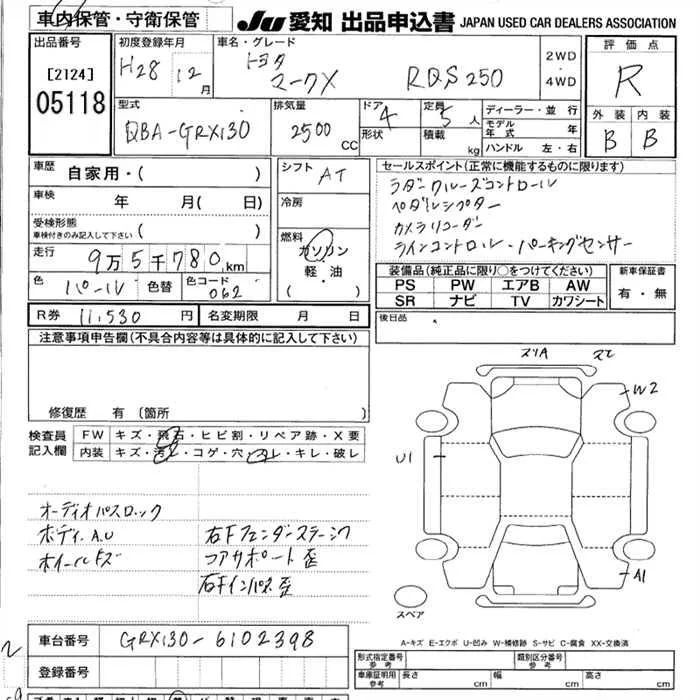 車内保管・守衛保管
JU 愛知 出品申込書 JAPAN USED CAR DEALERS ASSOCIATION
出品番号
[2124]
05118
初度登録年月
H28 12月
車名・グレード
トヨタ
マークX RDS 250
2WD
・
4WD
評価点
R
外装 内装
B B
型式
DBA-GRX130
排気量
2500 CC
ドア 4
形状
定員 5 人
積載 kg
ディーラー・並行
モデル年式 年
ハンドル 左・右
車歴 自家用・( )
車検 年 月( 日)
受検形態
車検付きのみ記入して下さい ( )
走行 9万5千780km
色 パール 色替 色コード 062
シフト AT
冷房
燃料
ガソリン
・
軽・油
( )
セールスポイント(正常に機能するものに限ります)
レーダークルーズコントロール
カメラリコーダー
ラインコントロール・パーキングセンサー
装備品(純正品に限り○をつけてください)
PS PW エアB AW
SR ナビ TV カワシート
新車保証書
有・無
R券 11,530 円 名変期限 月 日
後日品
注意事項申告欄(不具合内容等は具体的に記入して下さい)
修復歴 有(箇所 )
検査員
記入欄
FW キズ・飛石・ヒビ割・リペア跡・X要
内装 キズ・汚レ・コゲ・穴・スレ・キレ・破レ
オーディオパスロック
ボディA.U
ホイールキズ
右Fフェンダーステー
コアサポート歪
右Fインパネ歪
スリA
W2
U1
A1
スペア
A-キズ E-エクボ U-凹み W-補修跡 S-サビ C-腐食 XX-交換済
車台番号 GRX130-6102398
登録番号
形式指定番号
参考
類別区分番号
参考
車庫証明用
参考
長さ cm 幅 cm 高さ cm